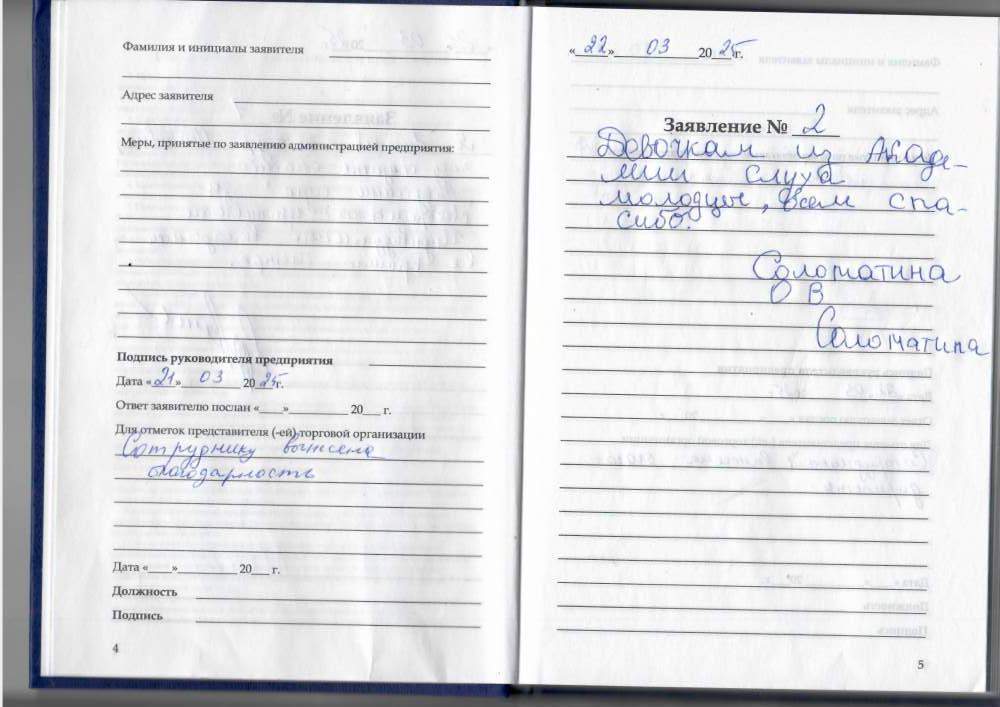 Фамилия и инициалы заявителя
Адрес заявителя
Меры, принятые по заявлению администрацией предприятия:
Подпись руководителя предприятия
Дата «21» 03 2025г.
Ответ заявителю послан «____»__________ 20___ г.
Для отметок представителя (-ей) торговой организации
Сотруднику вынесена
благодарность
Дата «____»__________ 20___ г.
Должность
Подпись
4
«22» 03 2025г.
Заявление № 2
Девочкам из Акаде-
мии слуха
молодцы, всем спа-
сибо.
Соломатина
О В
Соломатина
5